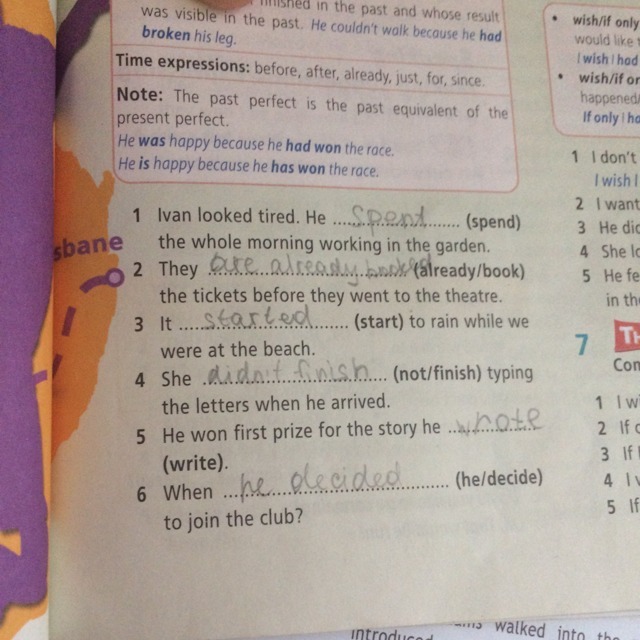 finished in the past and whose result
was visible in the past. He couldn't walk because he had
broken his leg.
Time expressions: before, after, already, just, for, since.
Note: The past perfect is the past equivalent of the
present perfect.
He was happy because he had won the race.
He is happy because he has won the race.
1 Ivan looked tired. He ...spent... (spend)
the whole morning working in the garden.
2 They ...are already booked... (already/book)
the tickets before they went to the theatre.
3 It ...started... (start) to rain while we
were at the beach.
4 She ...didn't finish... (not/finish) typing
the letters when he arrived.
5 He won first prize for the story he ...wrote...
(write).
6 When ...he decided... (he/decide)
to join the club?
sbane
• wish/if only
would like t
I wish I had
• wish/if or
happened/
If only I ha
1 I don't
I wish I
2 I want
3 He did
4 She lo
5 He fe
in the
7 Th
Con
1 I wi
2 If
3 If
4 I
5 If
introduced
walked into the